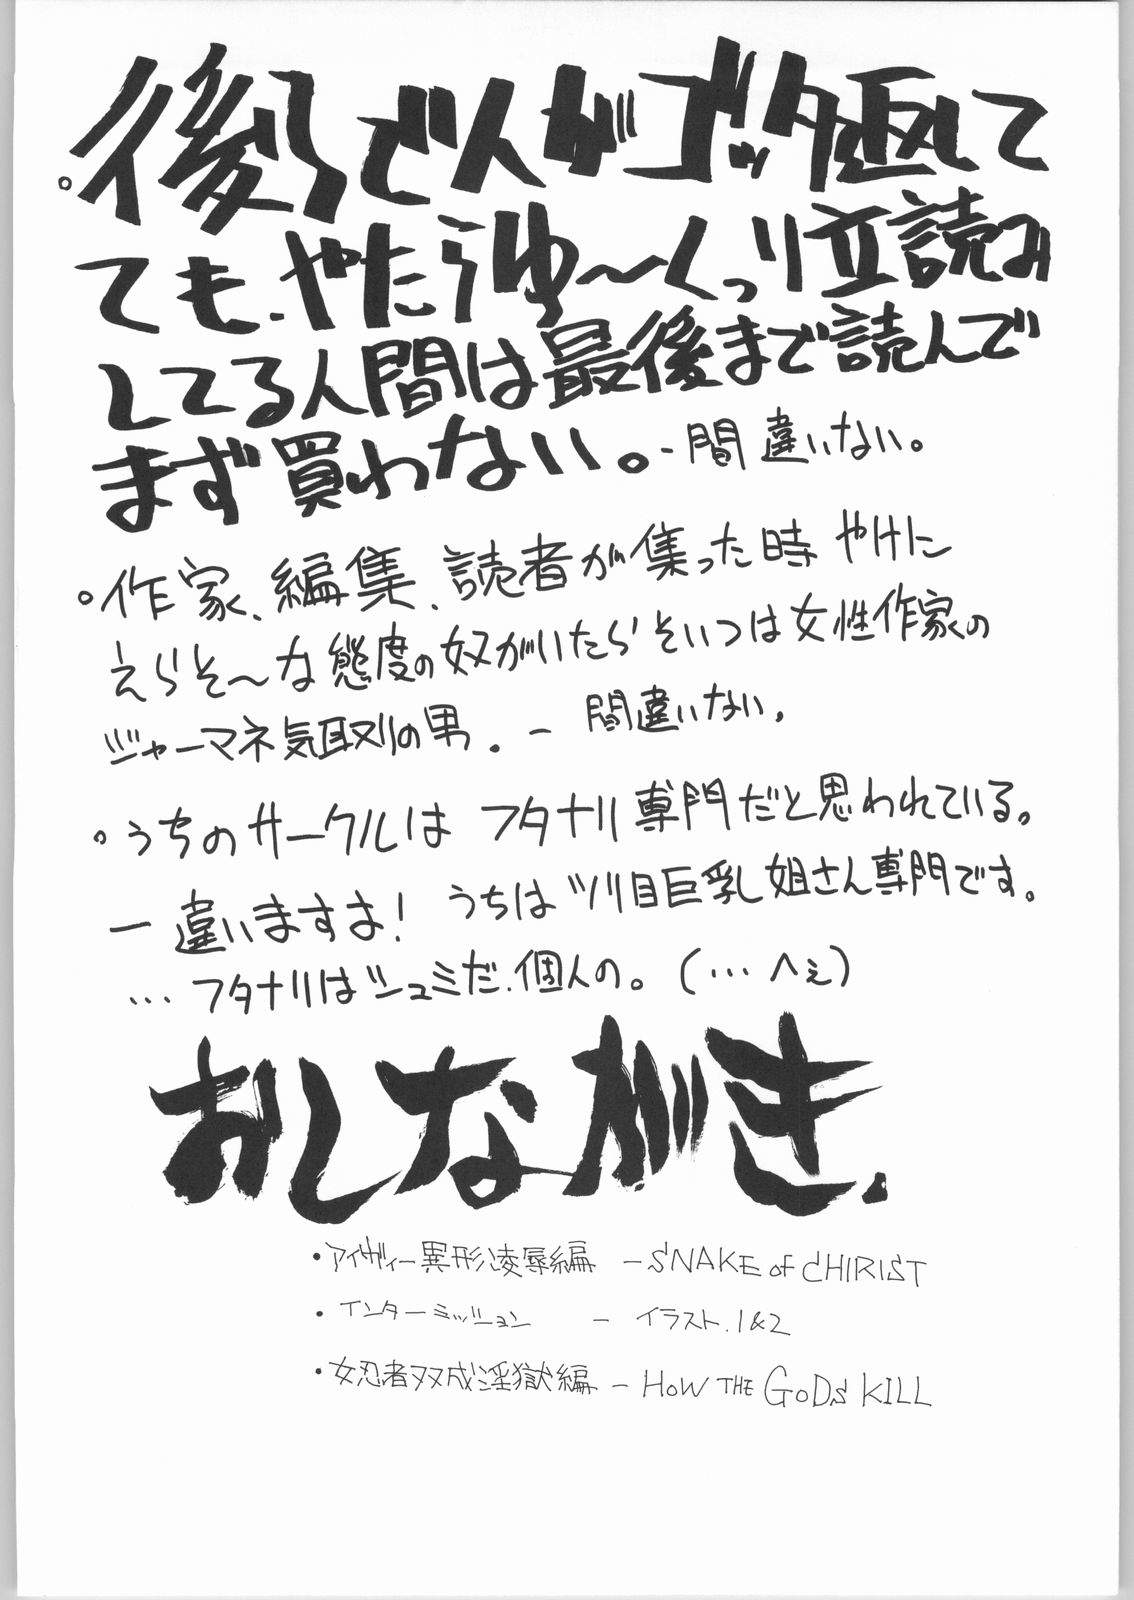 。後ろで人がゴッタ返して
ても、やたらゆ〜くっり立読み
してる人間は最後まで読んで
まず買わない。- 間違いない。
。作家、編集、読者が集った時 やけに
えらそ〜な態度の奴がいたら そいつは女性作家の
ジャーマネ気取りの男。― 間違いない。
。うちのサークルは フタナリ専門だと思われている。
― 違いますよ! うちは ツリ目巨乳姐さん専門です。
… フタナリはシュミだ.個人の。(… へぇ)
おしながき.
・アイヴィー異形凌辱編 ― SNAKE oF CHIRIST
・インターミッション ― イラスト.1&2
・女忍者双成淫獄編 ― HoW THE GoDs KILL